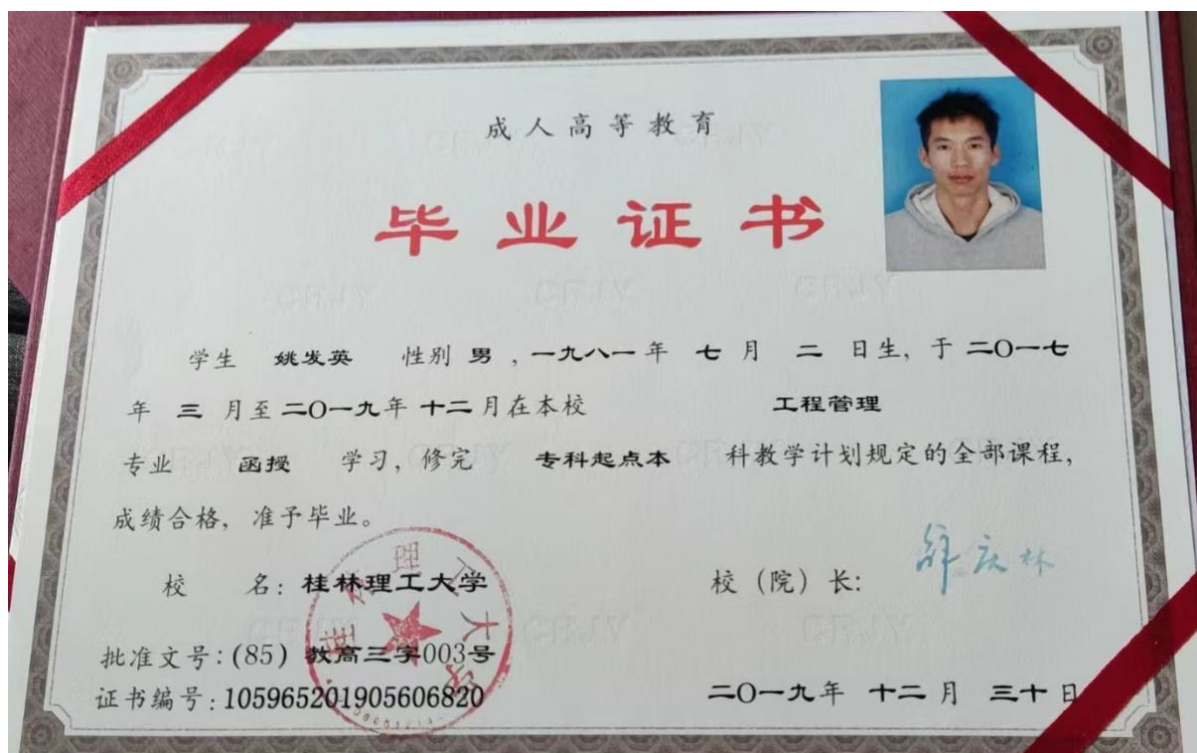 成人高等教育
毕业证书
学生 姚发英 性别 男 ，一九八一年 七 月 二 日生，于 二〇一七
年 三 月至二〇一九年 十二月在本校 工程管理
专业 函授 学习，修完 专科起点本 科教学计划规定的全部课程，
成绩合格，准予毕业。
校 名：桂林理工大学 校（院）长：
批准文号：(85) 教高三字003号
证书编号：105965201905606820 二〇一九年 十二月 三十日
桂林理工大学